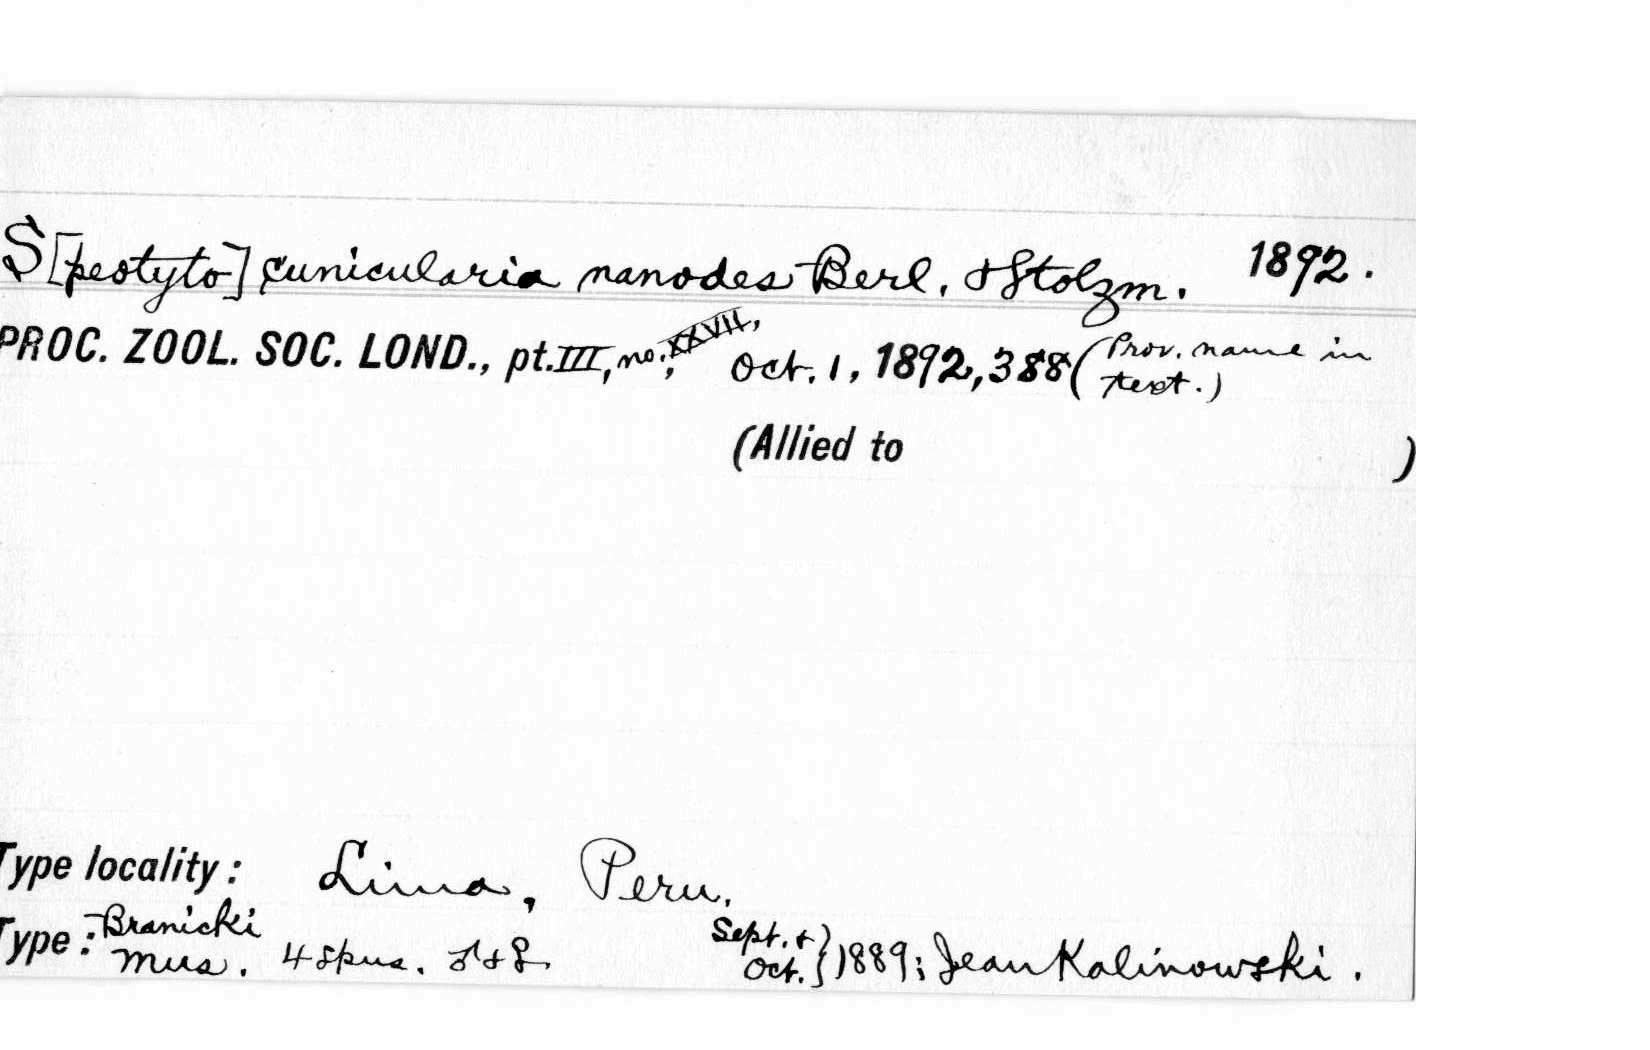 S[peotyto] cunicularia nanodes Berl. & Stolzm. 1892.
PROC. ZOOL. SOC. LOND., pt. III, no. XXVII, Oct. 1, 1892, 388 (Prov. name in
text.)
(Allied to )
Type locality: Lima, Peru.
Type: Branicki Mus. 4 spms. ♂ & ♀. Sept. & Oct. } 1889; Jean Kalinowski.